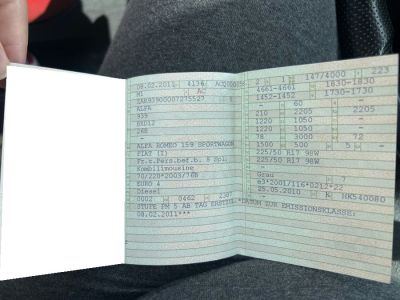 08.02.2011 4136
M1 AC
ZAR93900007275527
ALFA
939
BXD12
26B
-
ALFA ROMEO 159 SPORTWAGON
FIAT (I)
Fz.z.Pers.bef.b. 8 Spl.
Kombilimousine
70/220*2003/76B
EURO 4
Diesel
0002 0462 2387
STUFE PM 5 AB TAG ERSTZUL.*DATUM ZUR EMISSIONSKLASSE:
08.02.2011***
2 1 147/4000 223
4661-4661 1830-1830
1452-1452 1730-1730
- 60 -
210 2205 2205
1220 1050 -
1220 1050 -
78 3000 72
1500 500 5 -
225/50 R17 98W
225/50 R17 98W
-
Grau 7
e3*2001/116*0212*22
25.05.2010 NK540080